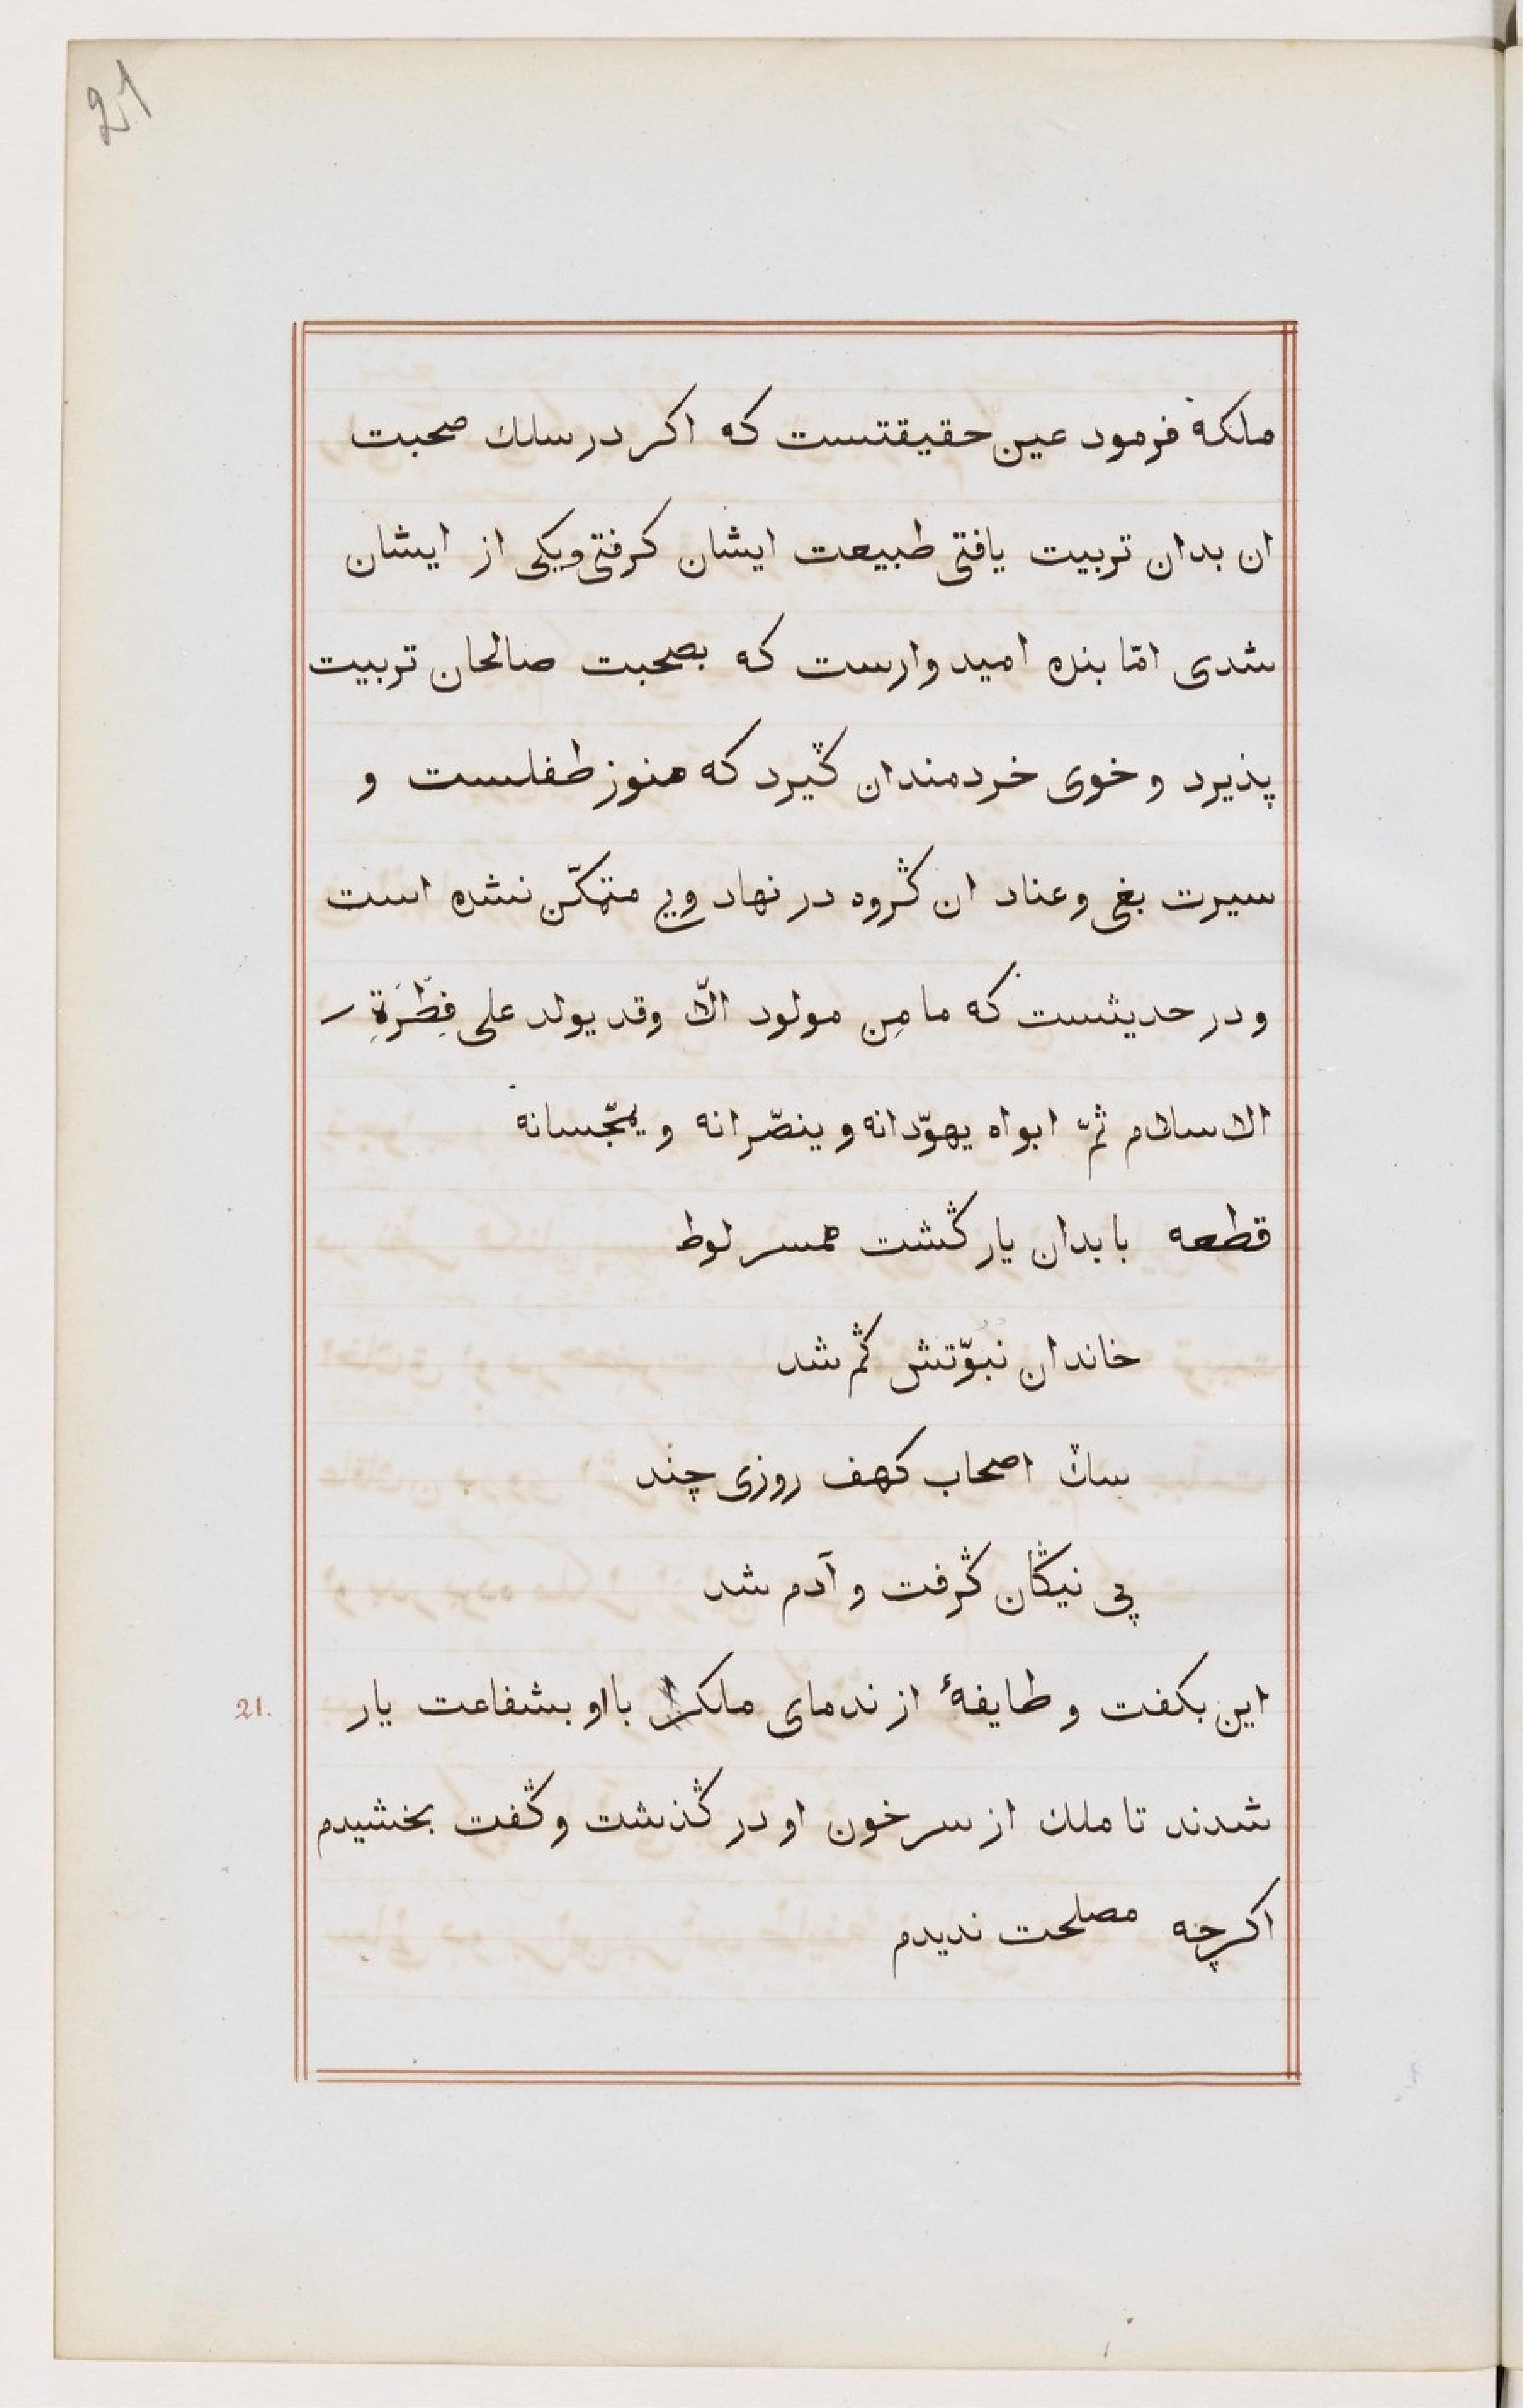 21
ملكه فرمود عين حقيقتست كه اكر در سلك صحبت
ان بدان تربيت يافتى طبيعت ايشان كرفتى ويكى از ايشان
شدى امّا بنده اميدوارست كه بصحبت صالحان تربيت
پذيرد و خوى خردمندان ݣيرد كه هنوز طفلست و
سيرت بغى وعناد ان ݣروه در نهاد وى متمكّن نشده است
ودر حديثست كه ما مِن مولود الّا وقد يولد على فِطْرَةِ
الاسلام ثمّ ابواه يهوّدانه وينصّرانه ويمجّسانه
قطعه بابدان يار ݣشت همسر لوط
خاندان نبوّتش ݣم شد
سك اصحاب كهف روزى چند
پى نيكان ݣرفت و آدم شد
اين بكفت و طايفهٔ از ندماى ملك با او بشفاعت يار
21.
شدند تا ملك از سر خون او در ݣذشت وݣفت بخشيدم
اكرچه مصلحت نديدم